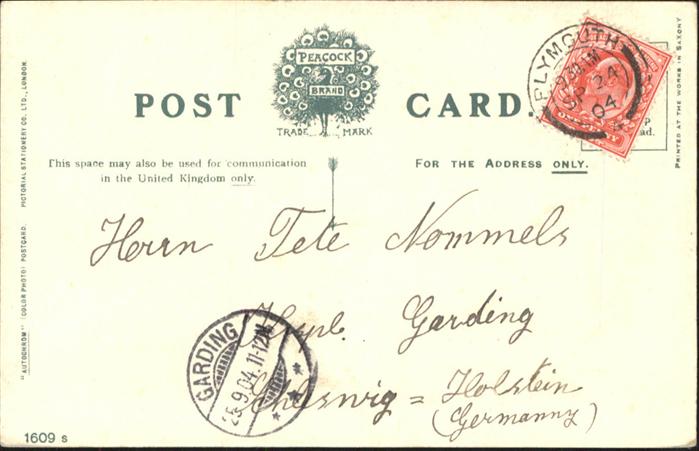 POST CARD.
PEACOCK
BRAND
TRADE MARK
This space may also be used for communication
in the United Kingdom only.
FOR THE ADDRESS ONLY.
PLYMOUTH
SP 24
04
Herrn Tete Nommels
Garding
Schleswig = Holstein
(Germanny)
GARDING
9.04.11-12N
1609 s
"AUTOCHROM" (COLOR PHOTO) POSTCARD. PICTORIAL STATIONERY CO. LTD., LONDON.
PRINTED AT THE WORKS IN SAXONY